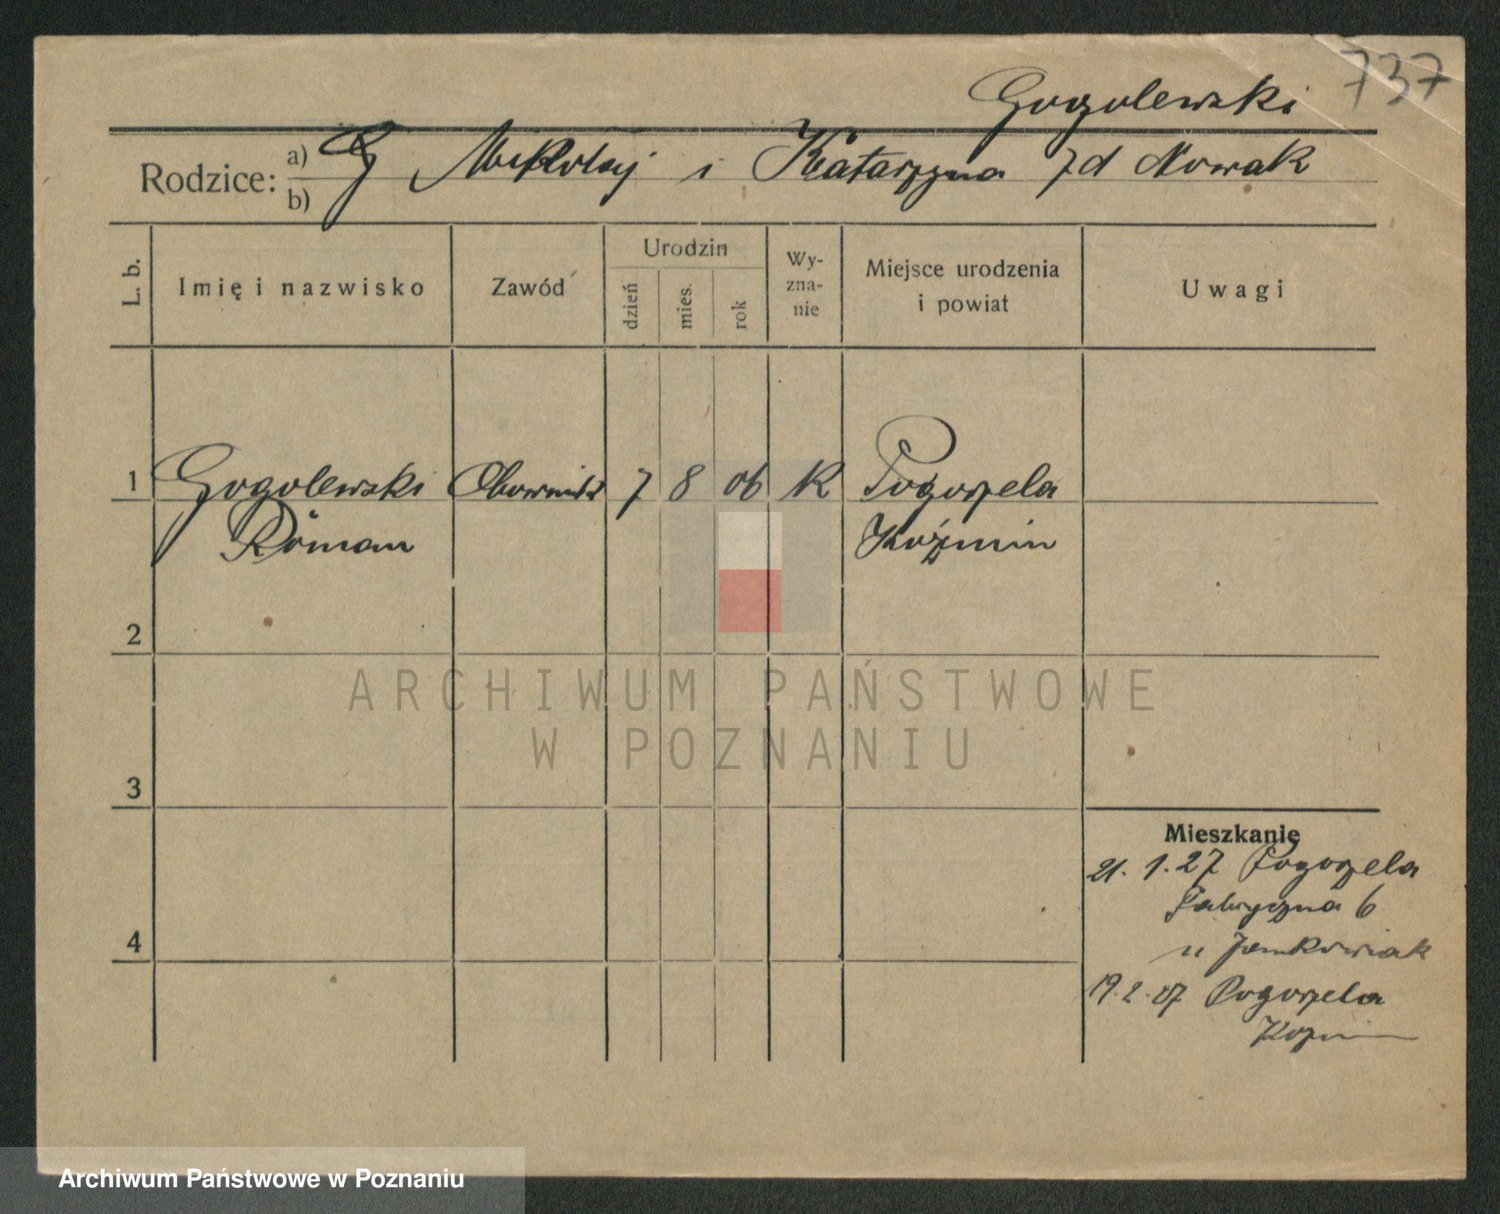 737
Gogolewski
Rodzice: a) G Mikołaj i Katarzyna zd Nowak
b)
L. b.
Imię i nazwisko
Zawód
Urodzin
dzień
mies.
rok
Wy-
zna-
nie
Miejsce urodzenia
i powiat
Uwagi
1 Gogolewski 7 8 06 K Pogorzela
Roman Koźmin
2
3
4
Mieszkanie
21.1.27 Pogorzela
Fabryczna 6
u Jankowiak
19.2.27 Pogorzela
ARCHIWUM PAŃSTWOWE
W POZNANIU
Archiwum Państwowe w Poznaniu